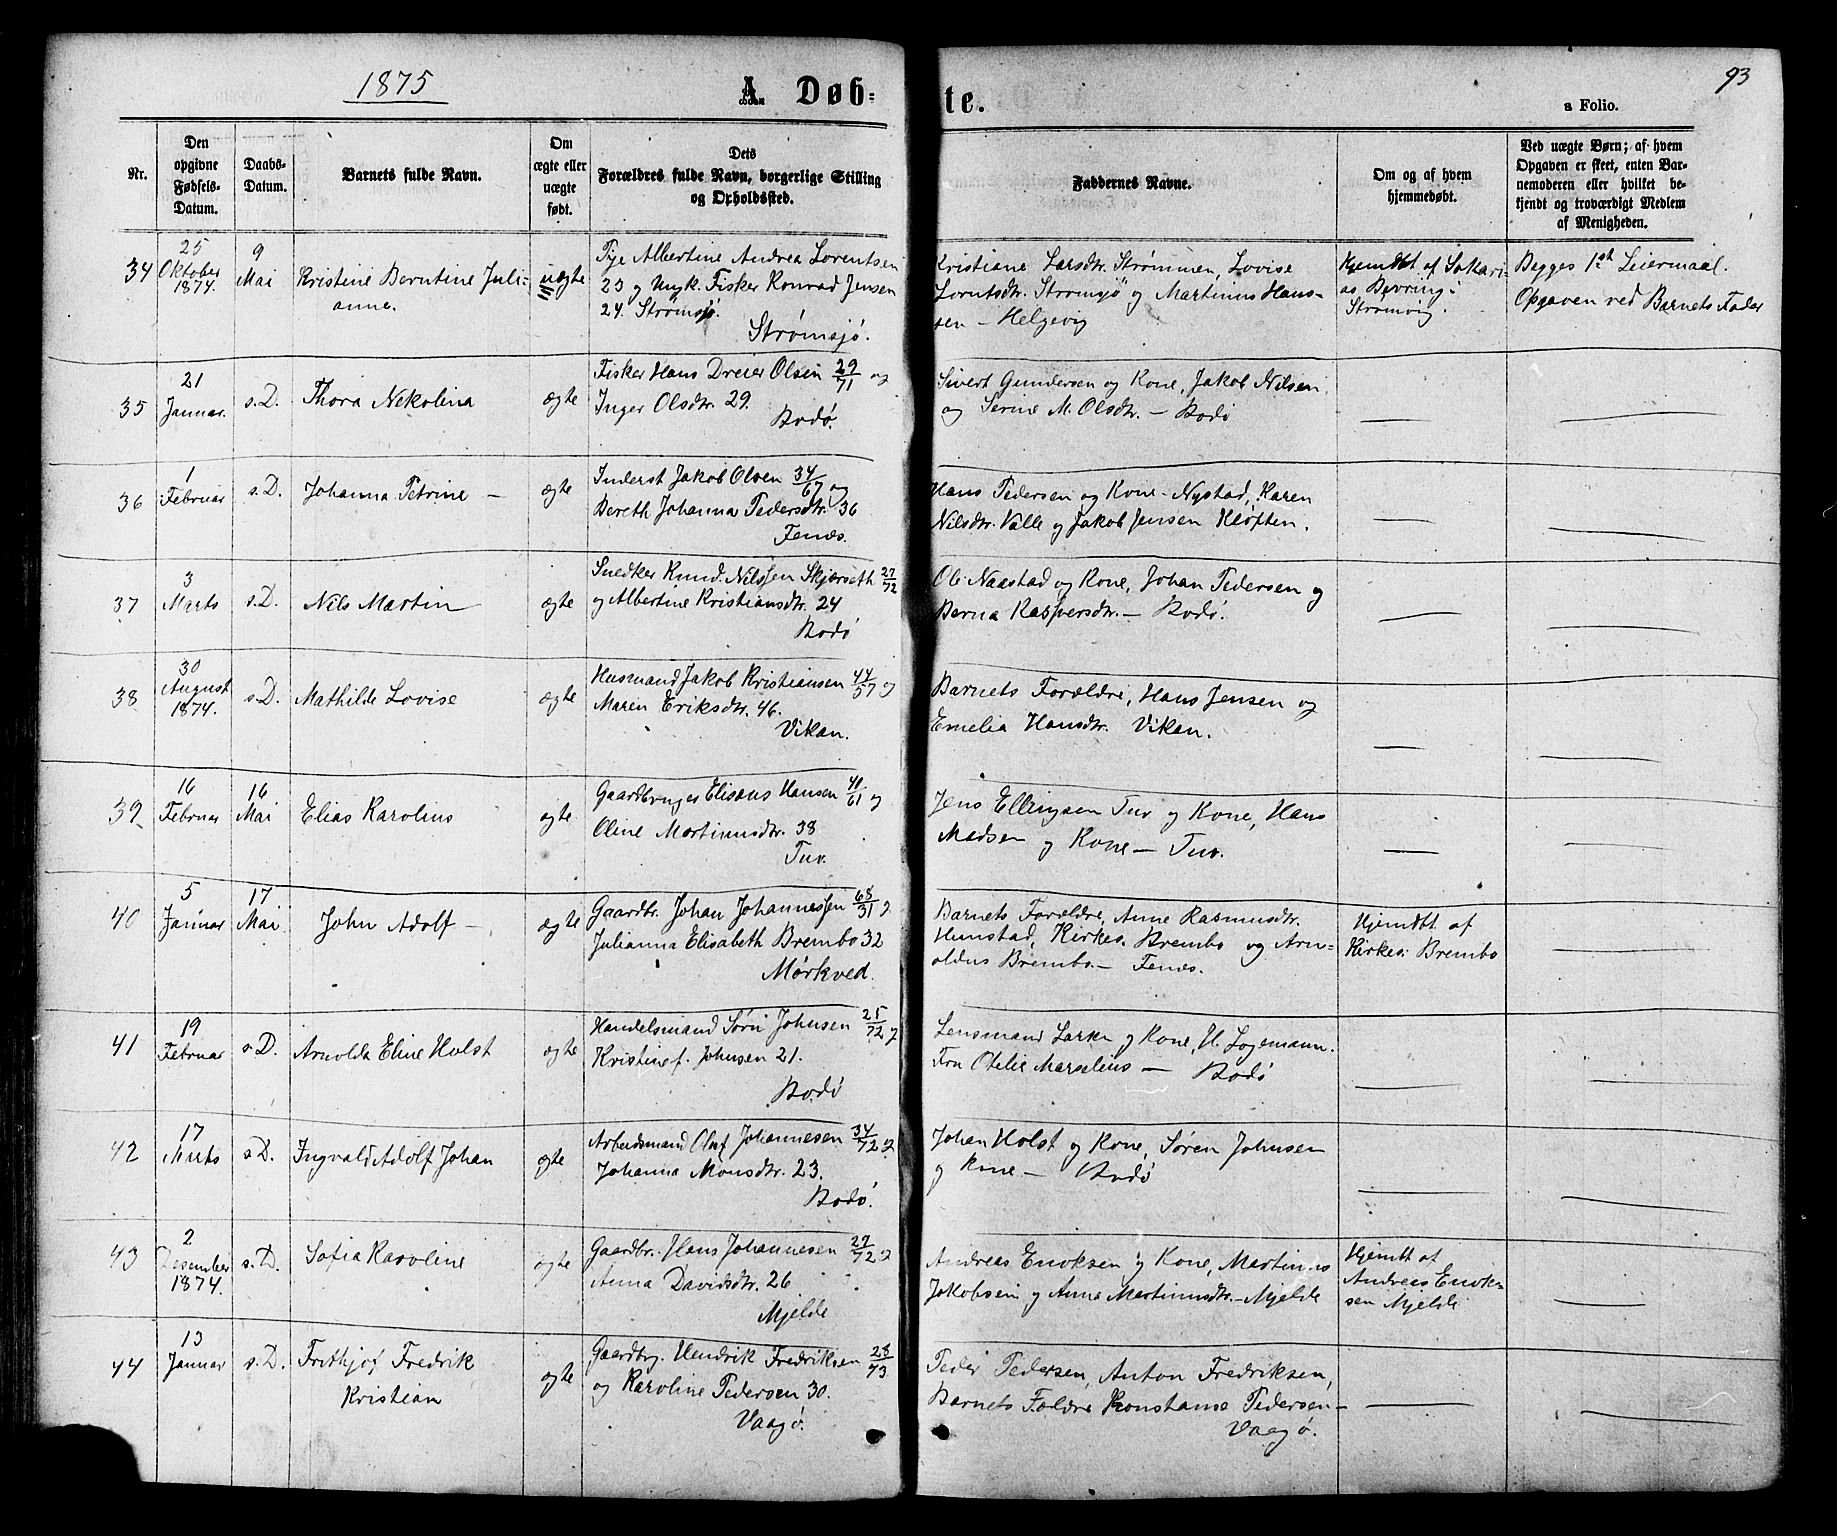 1875
A. Døb=
te.
93
a Folio.
Nr.
Den
opgivne
Fødsels-
Datum.
Daabs-
Datum.
Barnets fulde Navn.
Om
ægte eller
uægte
født.
Dets
Forældres fulde Navn, borgerlige Stilling
og Opholdssted.
Faddernes Navne.
Om og af hvem
hjemmedøbt.
Ved uægte Børn; af hvem
Opgaven er skeet, enten Bar-
nemoderen eller hvilket be-
kjendt og troværdigt Medlem
af Menigheden.
34
25
Oktober
1874.
9
Mai
Kristine Berntine Juli-
anne.
uægte
Pige Albertine Andrea Lorentsen
23 og Ungk. Fisker Konrad Jensen
24. Strømsjø.
Strømsjø.
Kristiane Larsdtr. Strømmen, Lovise
Lorntsdtr. Strømsjø og Martinus Han-
sen - Helgevig
Hjemdbt af Sakari-
as
Strømvig.
Begges 1ste Leiermaal.
Opgaven ved Barnets Fader
35
21
Januar.
s.D.
Thora Nekolina
ægte
Fisker Hans Dreier Olsen 29/71 og
Inger Olsdtr. 29.
Bodø.
Sivert Gundersen og Kone, Jakob Nilsen
og Serine M. Olsdtr. - Bodø
36
1
Februar
s.D.
Johanna Petrine -
ægte
Inderst Jakob Olsen 34/67 og
Bereth Johanna Pedersdtr. 36
Fenes.
Hans Pedersen og Kone - Nystad, Karen
Nilsdtr. Valle og Jakob Jensen Kløften.
37
3
Marts
s.D.
Nils Martin
ægte
Snedker Knud Nilssen Skjærseth 27/72
og Albertine Kristiansdtr. 24
Bodø
Ol. Naastad og Kone, Johan Pedersen og
Berna Kaspersdtr. - Bodø.
38
30
August
1874.
s.D.
Mathilde Lovise
ægte
Husmand Jakob Kristiansen 44/57 og
Maren Eriksdtr. 46.
Vikan.
Barnets Forældre, Hans Jensen og
Emelia Hansdtr. Vikan.
39
16
Februar
16
Mai
Elias Karolius
ægte
Gaardbruger Elisæus Hansen 41/61 og
Oline Martinusdtr. 38
Tuv.
Jens Ellingsen Tuv og Kone, Hans
Madsen og Kone - Tuv.
40
5
Januar
17
Mai
John Adolf -
ægte
Gaardbr. Johan Johannessen 68/31 og
Julianna Elisabeth Brembo 32
Mørkved.
Barnets Forældre, Anne Rasmusdtr.
Hunstad, Kirkes. Brembo og Arn-
oldus Brembo - Fenes.
Hjemdbt af
Kirkes: Brembo
41
19
Februar
s.D.
Arnolda Eline Holst
ægte
Handelsmand Sørn Johnsen 25/72 og
Kristine f. Johnsen 21.
Bodø
Lensmand Larsen og Kone, H. Logemann.
Fru Otelie Marselius - Bodø
42
17
Marts
s.D.
Ingvald Adolf Johan
ægte
Arbeidsmand Oluf Johannesen 34/72 og
Johanna Monsdtr. 23.
Bodø.
Johan Holst og Kone, Søren Johnsen
og Kone - Bodø
43
2
Desember
1874.
s.D.
Sofia Karoline
ægte
Gaardbr. Hans Johannesen 27/72 og
Anna Davidsdtr. 26
Mjelde
Andreas Enoksen og Kone, Martinus
Jakobsen og Anne Martinusdtr. - Mjelde
Hjemdt af
Andreas Enok-
sen Mjelde
44
13
Januar
s.D.
Frithjof Fredrik
Kristian
ægte
Gaardbrg. Hendrik Fredriksen 28/73
og Karoline Pedersen 30.
Vaagø.
Peder Pedersen, Anton Fredriksen,
Barnets Fældre Konstanse Pedersen -
Vaagø.